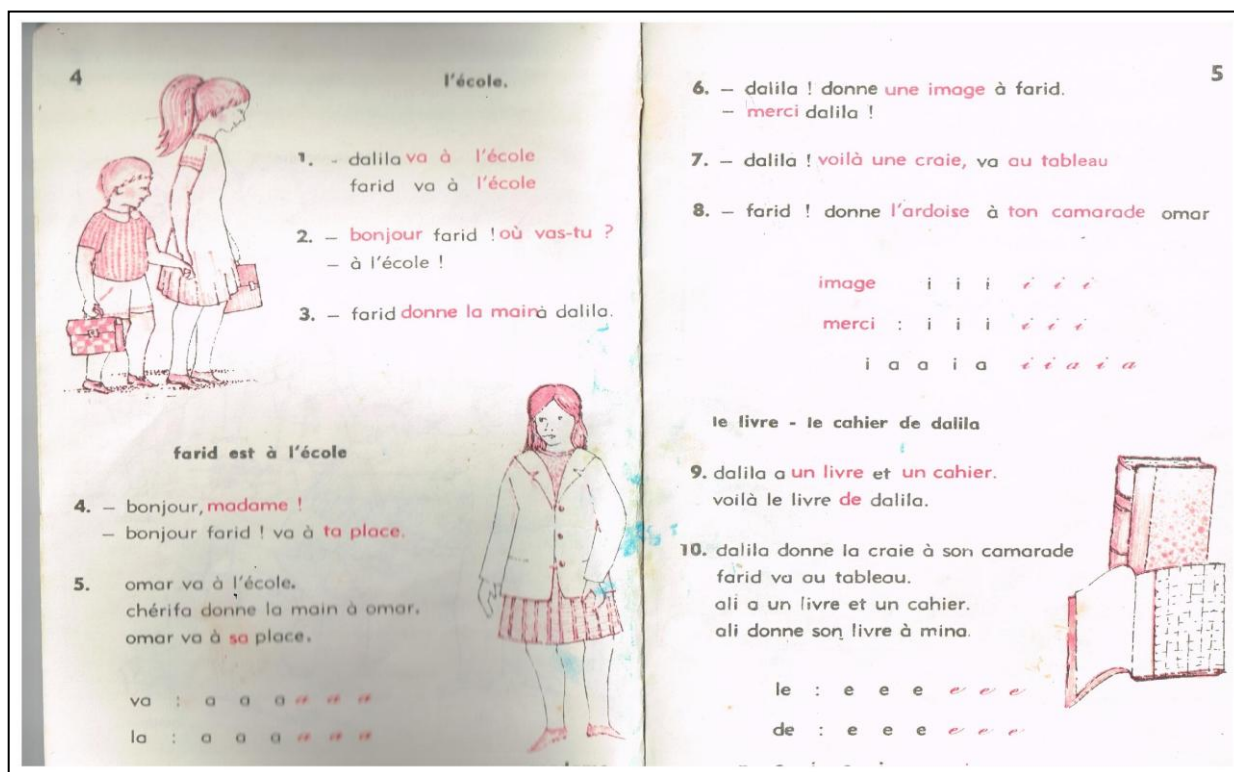 4
l'école.
1. - dalila va à l'école
farid va à l'école
2. – bonjour farid ! où vas-tu ?
– à l'école !
3. – farid donne la main à dalila.
farid est à l'école
4. – bonjour, madame !
– bonjour farid ! va à ta place.
5. omar va à l'école.
chérifa donne la main à omar.
omar va à sa place.
va : a a a a a a
la : a a a a a a
5
6. – dalila ! donne une image à farid.
– merci dalila !
7. – dalila ! voilà une craie, va au tableau
8. – farid ! donne l'ardoise à ton camarade omar
image i i i i i i
merci : i i i i i i
i a a i a i i a i a
le livre - le cahier de dalila
9. dalila a un livre et un cahier.
voilà le livre de dalila.
10. dalila donne la craie à son camarade
farid va au tableau.
ali a un livre et un cahier.
ali donne son livre à mina.
le : e e e e e e
de : e e e e e e